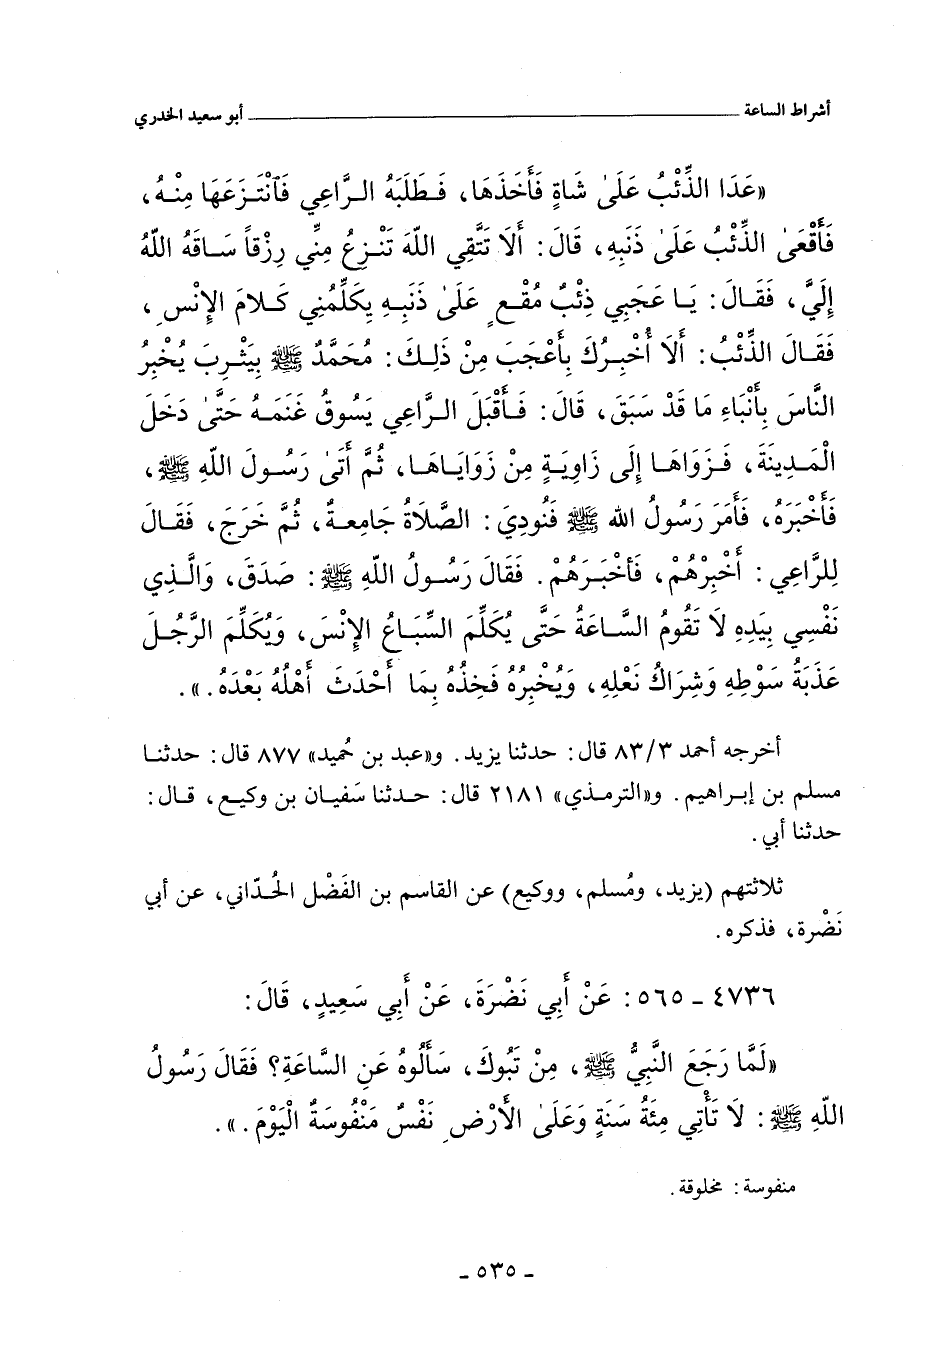 أشراط الساعة ــــــــــــــــــــــــــــــــ أبو سعيد الخدري
«عَدَا الذِّئْبُ عَلَىٰ شَاةٍ فَأَخَذَهَا، فَطَلَبَهُ الرَّاعِي فَٱنْتَزَعَهَا مِنْهُ،
فَأَقْعَىٰ الذِّئْبُ عَلَىٰ ذَنَبِهِ، قَالَ: أَلَا تَتَّقِي اللّهَ تَنْزِعُ مِنِّي رِزْقاً سَاقَهُ اللّهُ
إِلَيَّ، فَقَالَ: يَا عَجَبِي ذِئْبٌ مُقْعٍ عَلَىٰ ذَنَبِهِ يُكَلِّمُنِي كَلَامَ الإِنْسِ،
فَقَالَ الذِّئْبُ: أَلَا أُخْبِرُكَ بِأَعْجَبَ مِنْ ذَلِكَ: مُحَمَّدٌ ﷺ بِيَثْرِبَ يُخْبِرُ
النَّاسَ بِأَنْبَاءِ مَا قَدْ سَبَقَ، قَالَ: فَأَقْبَلَ الرَّاعِي يَسُوقُ غَنَمَهُ حَتَّىٰ دَخَلَ
الْمَدِينَةَ، فَزَوَاهَا إِلَى زَاوِيَةٍ مِنْ زَوَايَاهَا، ثُمَّ أَتَىٰ رَسُولَ اللّهِ ﷺ،
فَأَخْبَرَهُ، فَأَمَرَ رَسُولُ الله ﷺ فَنُودِيَ: الصَّلَاةُ جَامِعةٌ، ثُمَّ خَرَجَ، فَقَالَ
لِلرَّاعِي: أَخْبِرْهُمْ، فَأَخْبَرَهُمْ. فَقَالَ رَسُولُ اللّهِ ﷺ: صَدَقَ، وَالَّذِي
نَفْسِي بِيَدِهِ لَا تَقُومُ السَّاعَةُ حَتَّى يُكَلِّمَ السِّبَاعُ الإِنْسَ، وَيُكَلِّمَ الرَّجُلَ
عَذَبَةُ سَوْطِهِ وَشِرَاكُ نَعْلِهِ، وَيُخْبِرُهُ فَخِذُهُ بِمَا أَحْدَثَ أَهْلُهُ بَعْدَهُ.».
أخرجه أحمد ٨٣/٣ قال: حدثنا يزيد. و«عبد بن حُميد» ٨٧٧ قال: حدثنا
مسلم بن إبراهيم. و«الترمذي» ٢١٨١ قال: حدثنا سَفيان بن وكيع، قال:
حدثنا أبي.
ثلاثتهم (يزيد، ومُسلم، ووكيع) عن القاسم بن الفَضْل الحُدّاني، عن أبي
نَضْرة، فذكره.
٤٧٣٦ - ٥٦٥: عَنْ أَبِي نَضْرَةَ، عَنْ أَبِي سَعِيدٍ، قَالَ:
«لَمَّا رَجَعَ النَّبِيُّ ﷺ، مِنْ تَبُوكَ، سَأَلُوهُ عَنِ السَّاعَةِ؟ فَقَالَ رَسُولُ
اللّهِ ﷺ: لَا تَأْتِي مِئَةُ سَنَةٍ وَعَلَىٰ الأَرْضِ نَفْسٌ مَنْفُوسَةٌ الْيَوْمَ.».
منفوسة: مخلوقة.
- ٥٣٥ -